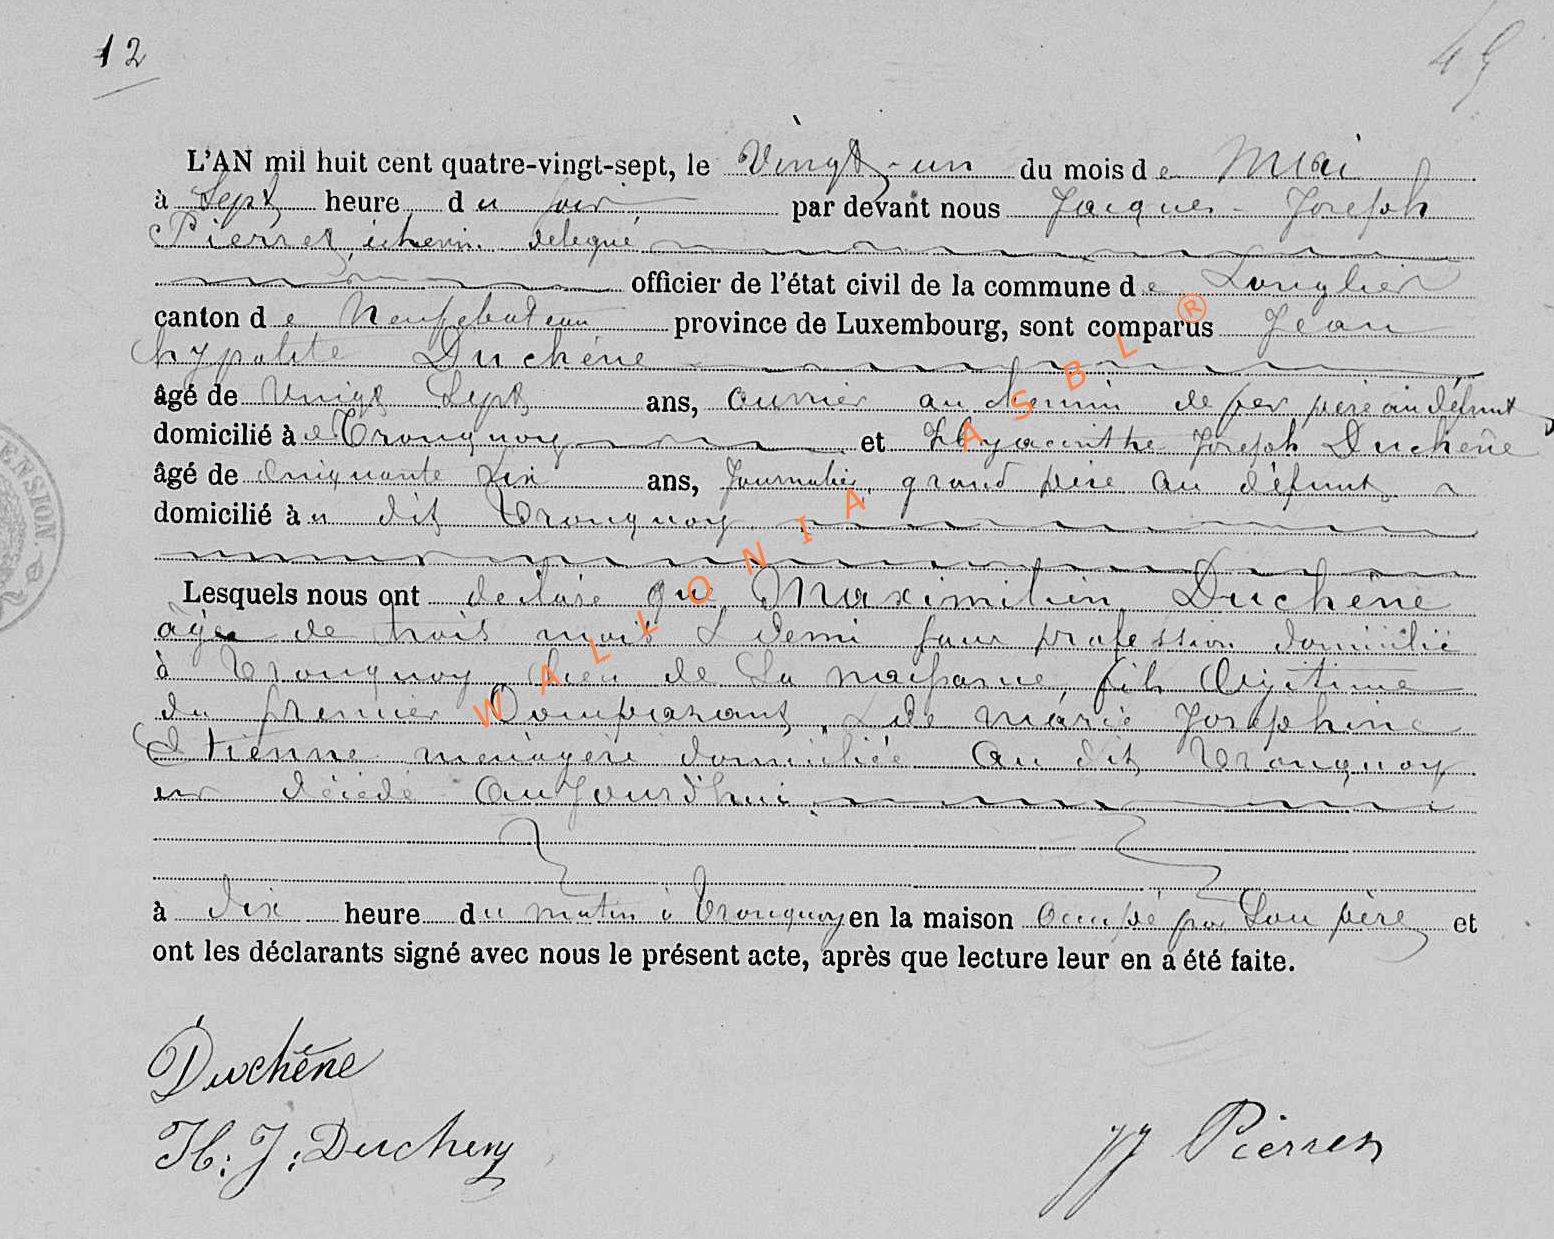 12
45
L'AN mil huit cent quatre-vingt-sept, le Vingt-un du mois de Mai
à Sept heure du soir par devant nous Jacques-Joseph
Pierret échevin délégué
officier de l'état civil de la commune de Longlier
canton de Neufchateau province de Luxembourg, sont comparus Jean
hypolite Duchêne
âgé de Vingt Sept ans, ouvrier au chemin de fer père au défunt
domicilié à Tronquoy et Hyacinthe Joseph Duchêne
âgé de Cinquante six ans, Journalier, grand père au défunt
domicilié àu dit Tronquoy
Lesquels nous ont déclaré que Maximilien Duchêne
âgé de trois mois & demi sans profession domicilié
à Tronquoy lieu de Sa naissance, fils légitime
du premier Comparant, & de marie Josephine
Etienne ménagère domiciliée au dit Tronquoy
est décédé aujourd'hui
à dix heure du matin à Tronquoy en la maison occupé par Son père et
ont les déclarants signé avec nous le présent acte, après que lecture leur en a été faite.
Duchêne
H. J. Duchêne
JJ Pierret
ENSION
WALLONIA ASBL ®